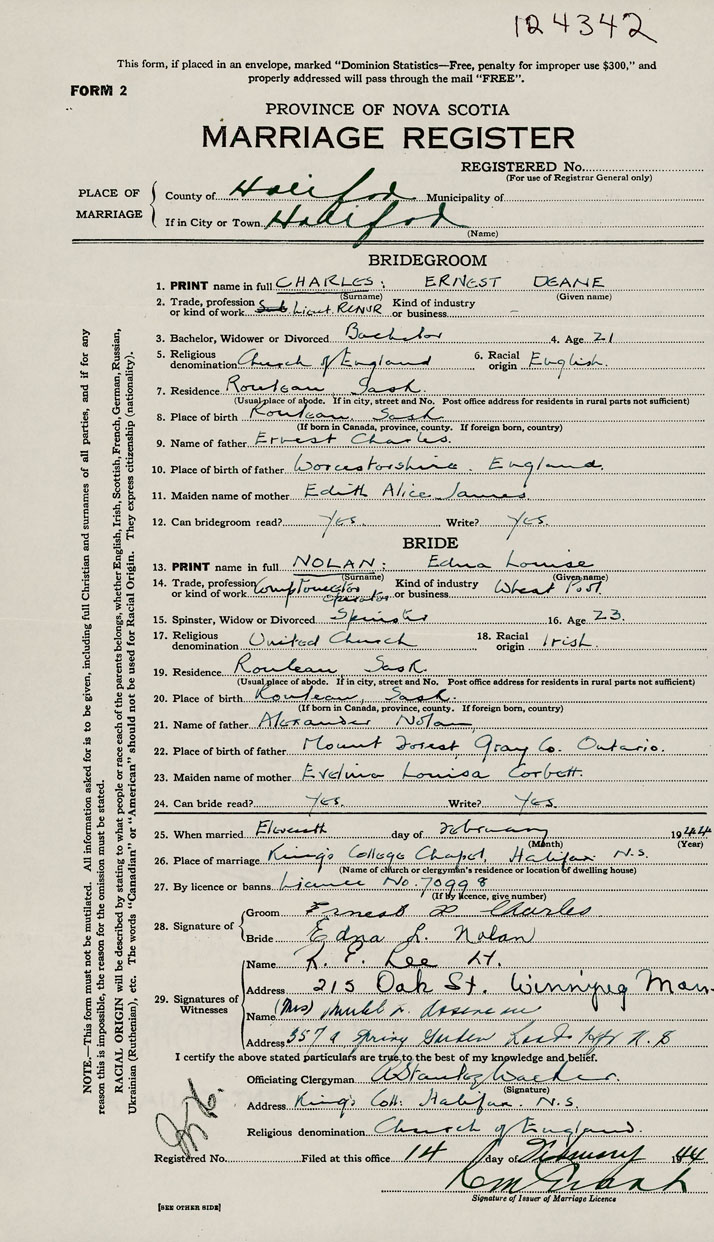 124342
This form, if placed in an envelope, marked "Dominion Statistics—Free, penalty for improper use $300," and
properly addressed will pass through the mail "FREE".
FORM 2
PROVINCE OF NOVA SCOTIA
MARRIAGE REGISTER
REGISTERED No.
(For use of Registrar General only)
PLACE OF MARRIAGE
County of Halifax Municipality of
If in City or Town Halifax
(Name)
BRIDEGROOM
1. PRINT name in full CHARLES: ERNEST DEANE
(Surname) (Given name)
2. Trade, profession or kind of work Sub Lieut. RCNVR Kind of industry or business -
3. Bachelor, Widower or Divorced Bachelor 4. Age 21
5. Religious denomination Church of England 6. Racial origin English.
7. Residence Rouleau Sask.
(Usual place of abode. If in city, street and No. Post office address for residents in rural parts not sufficient)
8. Place of birth Rouleau, Sask
(If born in Canada, province, county. If foreign born, country)
9. Name of father Ernest Charles.
10. Place of birth of father Worcestorshire. England.
11. Maiden name of mother Edith Alice James
12. Can bridegroom read? Yes. Write? Yes.
BRIDE
13. PRINT name in full NOLAN: Edna Louise
(Surname) (Given name)
14. Trade, profession or kind of work Comptometor operator Kind of industry or business Wheat Pool
15. Spinster, Widow or Divorced Spinster 16. Age 23.
17. Religious denomination United Church 18. Racial origin Irish.
19. Residence Rouleau Sask.
(Usual place of abode. If in city, street and No. Post office address for residents in rural parts not sufficient)
20. Place of birth Rouleau, Sask.
(If born in Canada, province, county. If foreign born, country)
21. Name of father Alexander Nolan
22. Place of birth of father Mount Forest, Gray Co. Ontario.
23. Maiden name of mother Evelina Louisa Corbett.
24. Can bride read? Yes. Write? Yes.
25. When married Eleventh day of February 1944
(Month) (Year)
26. Place of marriage King's College Chapel, Halifax N.S.
(Name of church or clergyman's residence or location of dwelling house)
27. By licence or banns Licence No. 70998
(If by licence, give number)
28. Signature of
Groom Ernest D Charles
Bride Edna L. Nolan
29. Signatures of Witnesses
Name R. E. Lee Lt.
Address 215 Oak St. Winnipeg Man.
Name (Mrs)
Address 357 Spring Garden Road Hfx N.S
I certify the above stated particulars are true to the best of my knowledge and belief.
Officiating Clergyman A Stanley Walker.
(Signature)
Address King's Coll. Halifax. N.S.
Religious denomination Church of England.
Registered No. Filed at this office 14 day of February 44
Signature of Issuer of Marriage Licence
[SEE OTHER SIDE]
NOTE.—This form must not be mutilated. All information asked for is to be given, including full Christian and surnames of all parties, and if for any
reason this is impossible, the reason for the omission must be stated.
RACIAL ORIGIN will be described by stating to what people or race each of the parents belongs, whether English, Irish, Scottish, French, German, Russian,
Ukrainian (Ruthenian), etc. The words "Canadian" or "American" should not be used for Racial Origin. They express citizenship (nationality).